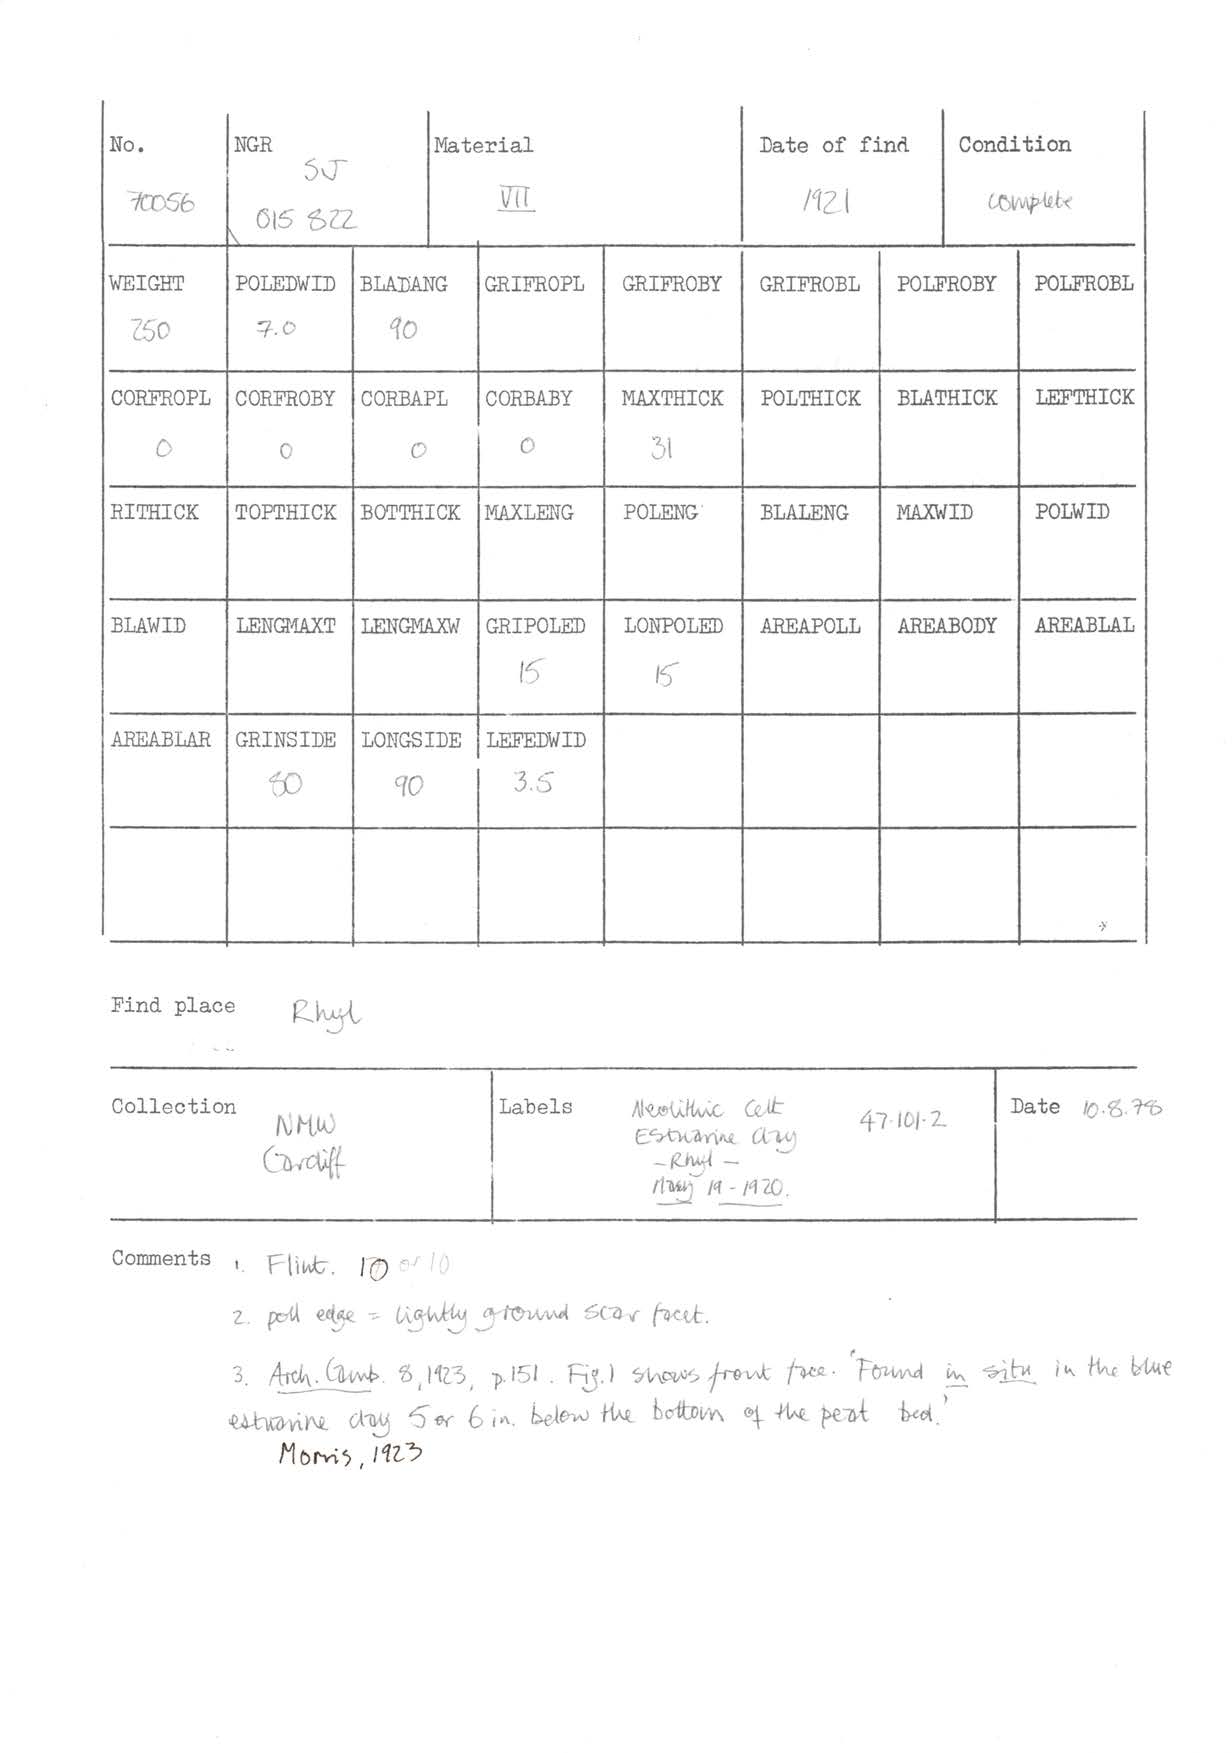 No. NGR Material Date of find Condition
70056 SJ 015 822 VII 1921 complete
WEIGHT POLEDWID BLADANG GRIFROPL GRIFROBY GRIFROBL POLFROBY POLFROBL
250 7.0 90
CORFROPL CORFROBY CORBAPL CORBABY MAXTHICK POLTHICK BLATHICK LEFTHICK
0 0 0 0 31
RITHICK TOPTHICK BOTTHICK MAXLENG POLENG BLALENG MAXWID POLWID
BLAWID LENGMAXT LENGMAXW GRIPOLED LONPOLED AREAPOLL AREABODY AREABLAL
15 15
AREABLAR GRINSIDE LONGSIDE LEFEDWID
80 90 3.5
Find place Rhyl
Collection
NMW
Cardiff
Labels
Neolithic Celt
Estuarine Clay
- Rhyl -
19 - 1920.
47.101.2
Date 10.8.78
Comments 1. Flint. 10 or 10
2. poll edge = lightly ground scar facet.
3. Arch. Camb. 8, 1923, p.151. Fig.1 shows front face. 'Found in situ in the blue
estuarine clay 5 or 6 in. below the bottom of the peat bed.'
Morris, 1923